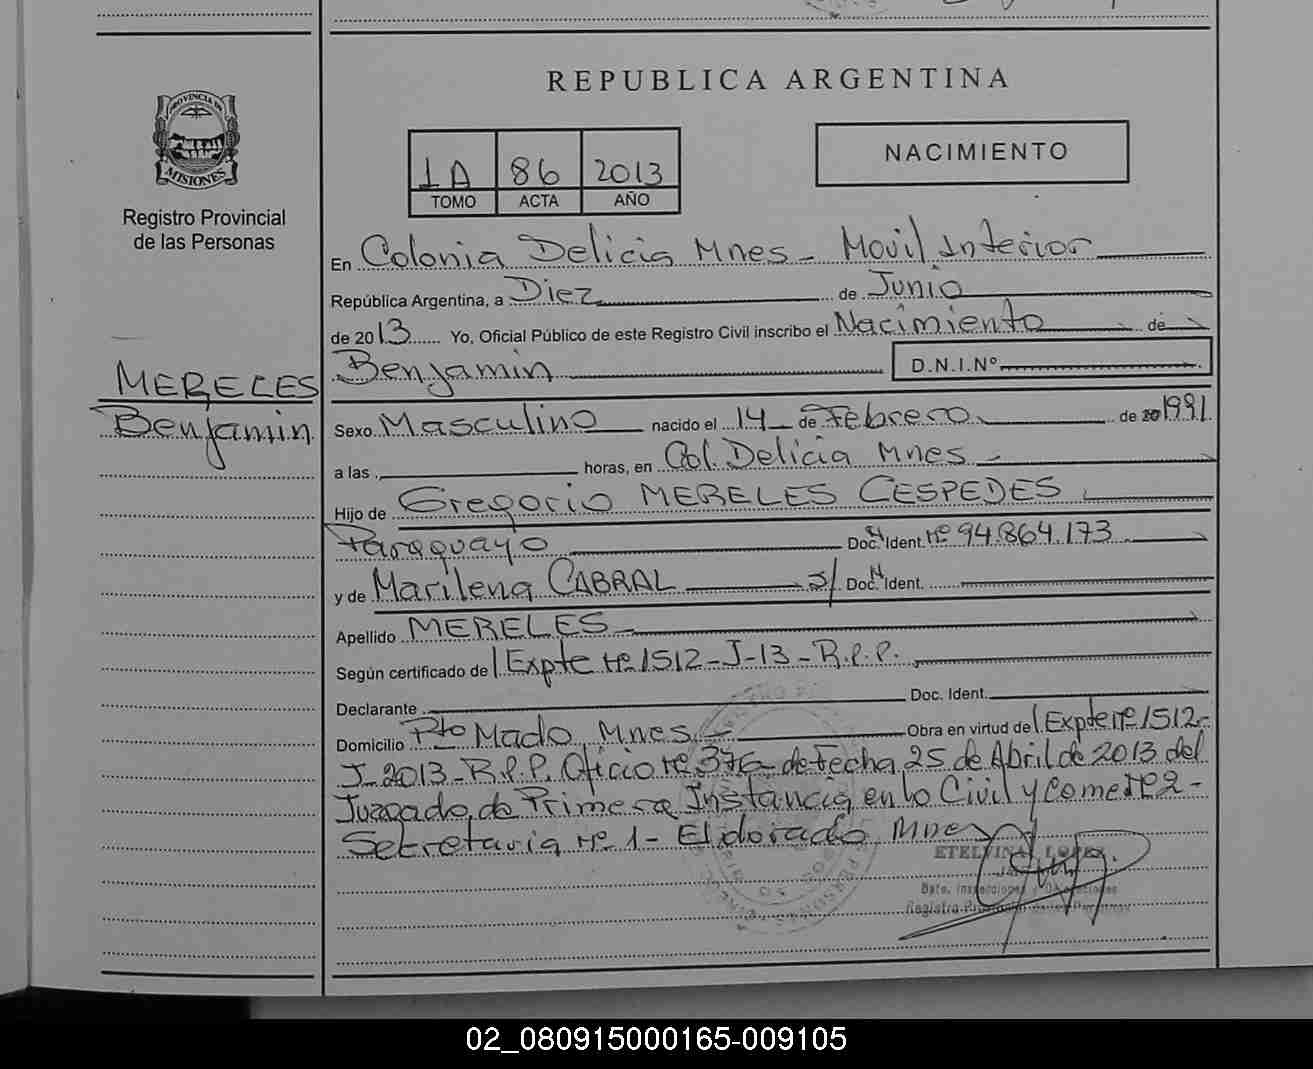 REPUBLICA ARGENTINA
PROVINCIA DE
MISIONES
Registro Provincial
de las Personas
1A 86 2013
TOMO ACTA AÑO
NACIMIENTO
En Colonia Delicia Mnes - Movil Interior
República Argentina, a Diez de Junio
de 2013 Yo, Oficial Público de este Registro Civil inscribo el Nacimiento de
Benjamin D.N.I.Nº
MERELES
Benjamin
Sexo Masculino nacido el 14 de Febrero de 20 1991
a las horas, en Col. Delicia Mnes -
Hijo de Gregorio MERELES CESPEDES
Paraguayo Doc. Ident. Nº 94.864.173
y de Marilena CABRAL S/ Doc. Ident.
Apellido MERELES
Según certificado de Expte Nº 1512-J-13-R.P.P.
Declarante Doc. Ident.
Domicilio Pto Mado Mnes Obra en virtud de Expte Nº 1512-
J-2013-R.P.P. Oficio Nº 376 de Fecha 25 de Abril de 2013 del
Juzgado de Primera Instancia en lo Civil y Comer Nº 2-
Secretaria Nº 1- Eldorado Mnes
ETELVINA LOPEZ
Dpto. Inspecciones
Registro Provincial de las Personas
02_080915000165-009105